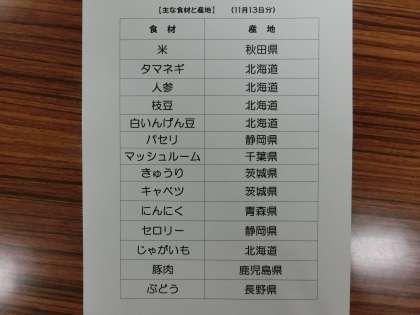 【主な食材と産地】 (11月13日分)
食 材 産 地
米 秋田県
タマネギ 北海道
人参 北海道
枝豆 北海道
白いんげん豆 北海道
パセリ 静岡県
マッシュルーム 千葉県
きゅうり 茨城県
キャベツ 茨城県
にんにく 青森県
セロリー 静岡県
じゃがいも 北海道
豚肉 鹿児島県
ぶどう 長野県